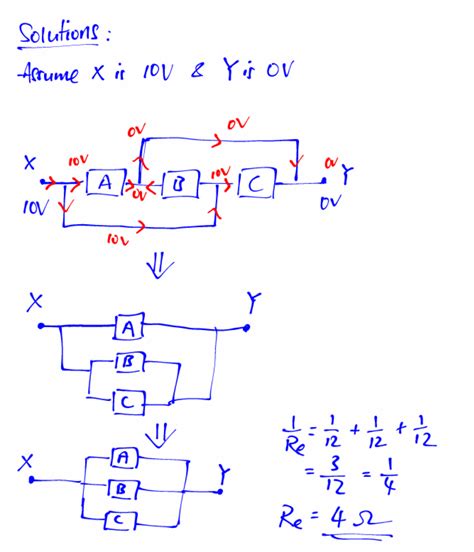 Solutions :
Assume X is 10V & Y is 0V
0V
0V
X 10V A 0V B 10V C 0V Y
10V
0V
10V
⇓
X Y
A
B
C
⇓
X A Y
B
C
1/Re = 1/12 + 1/12 + 1/12
= 3/12 = 1/4
Re = 4 Ω